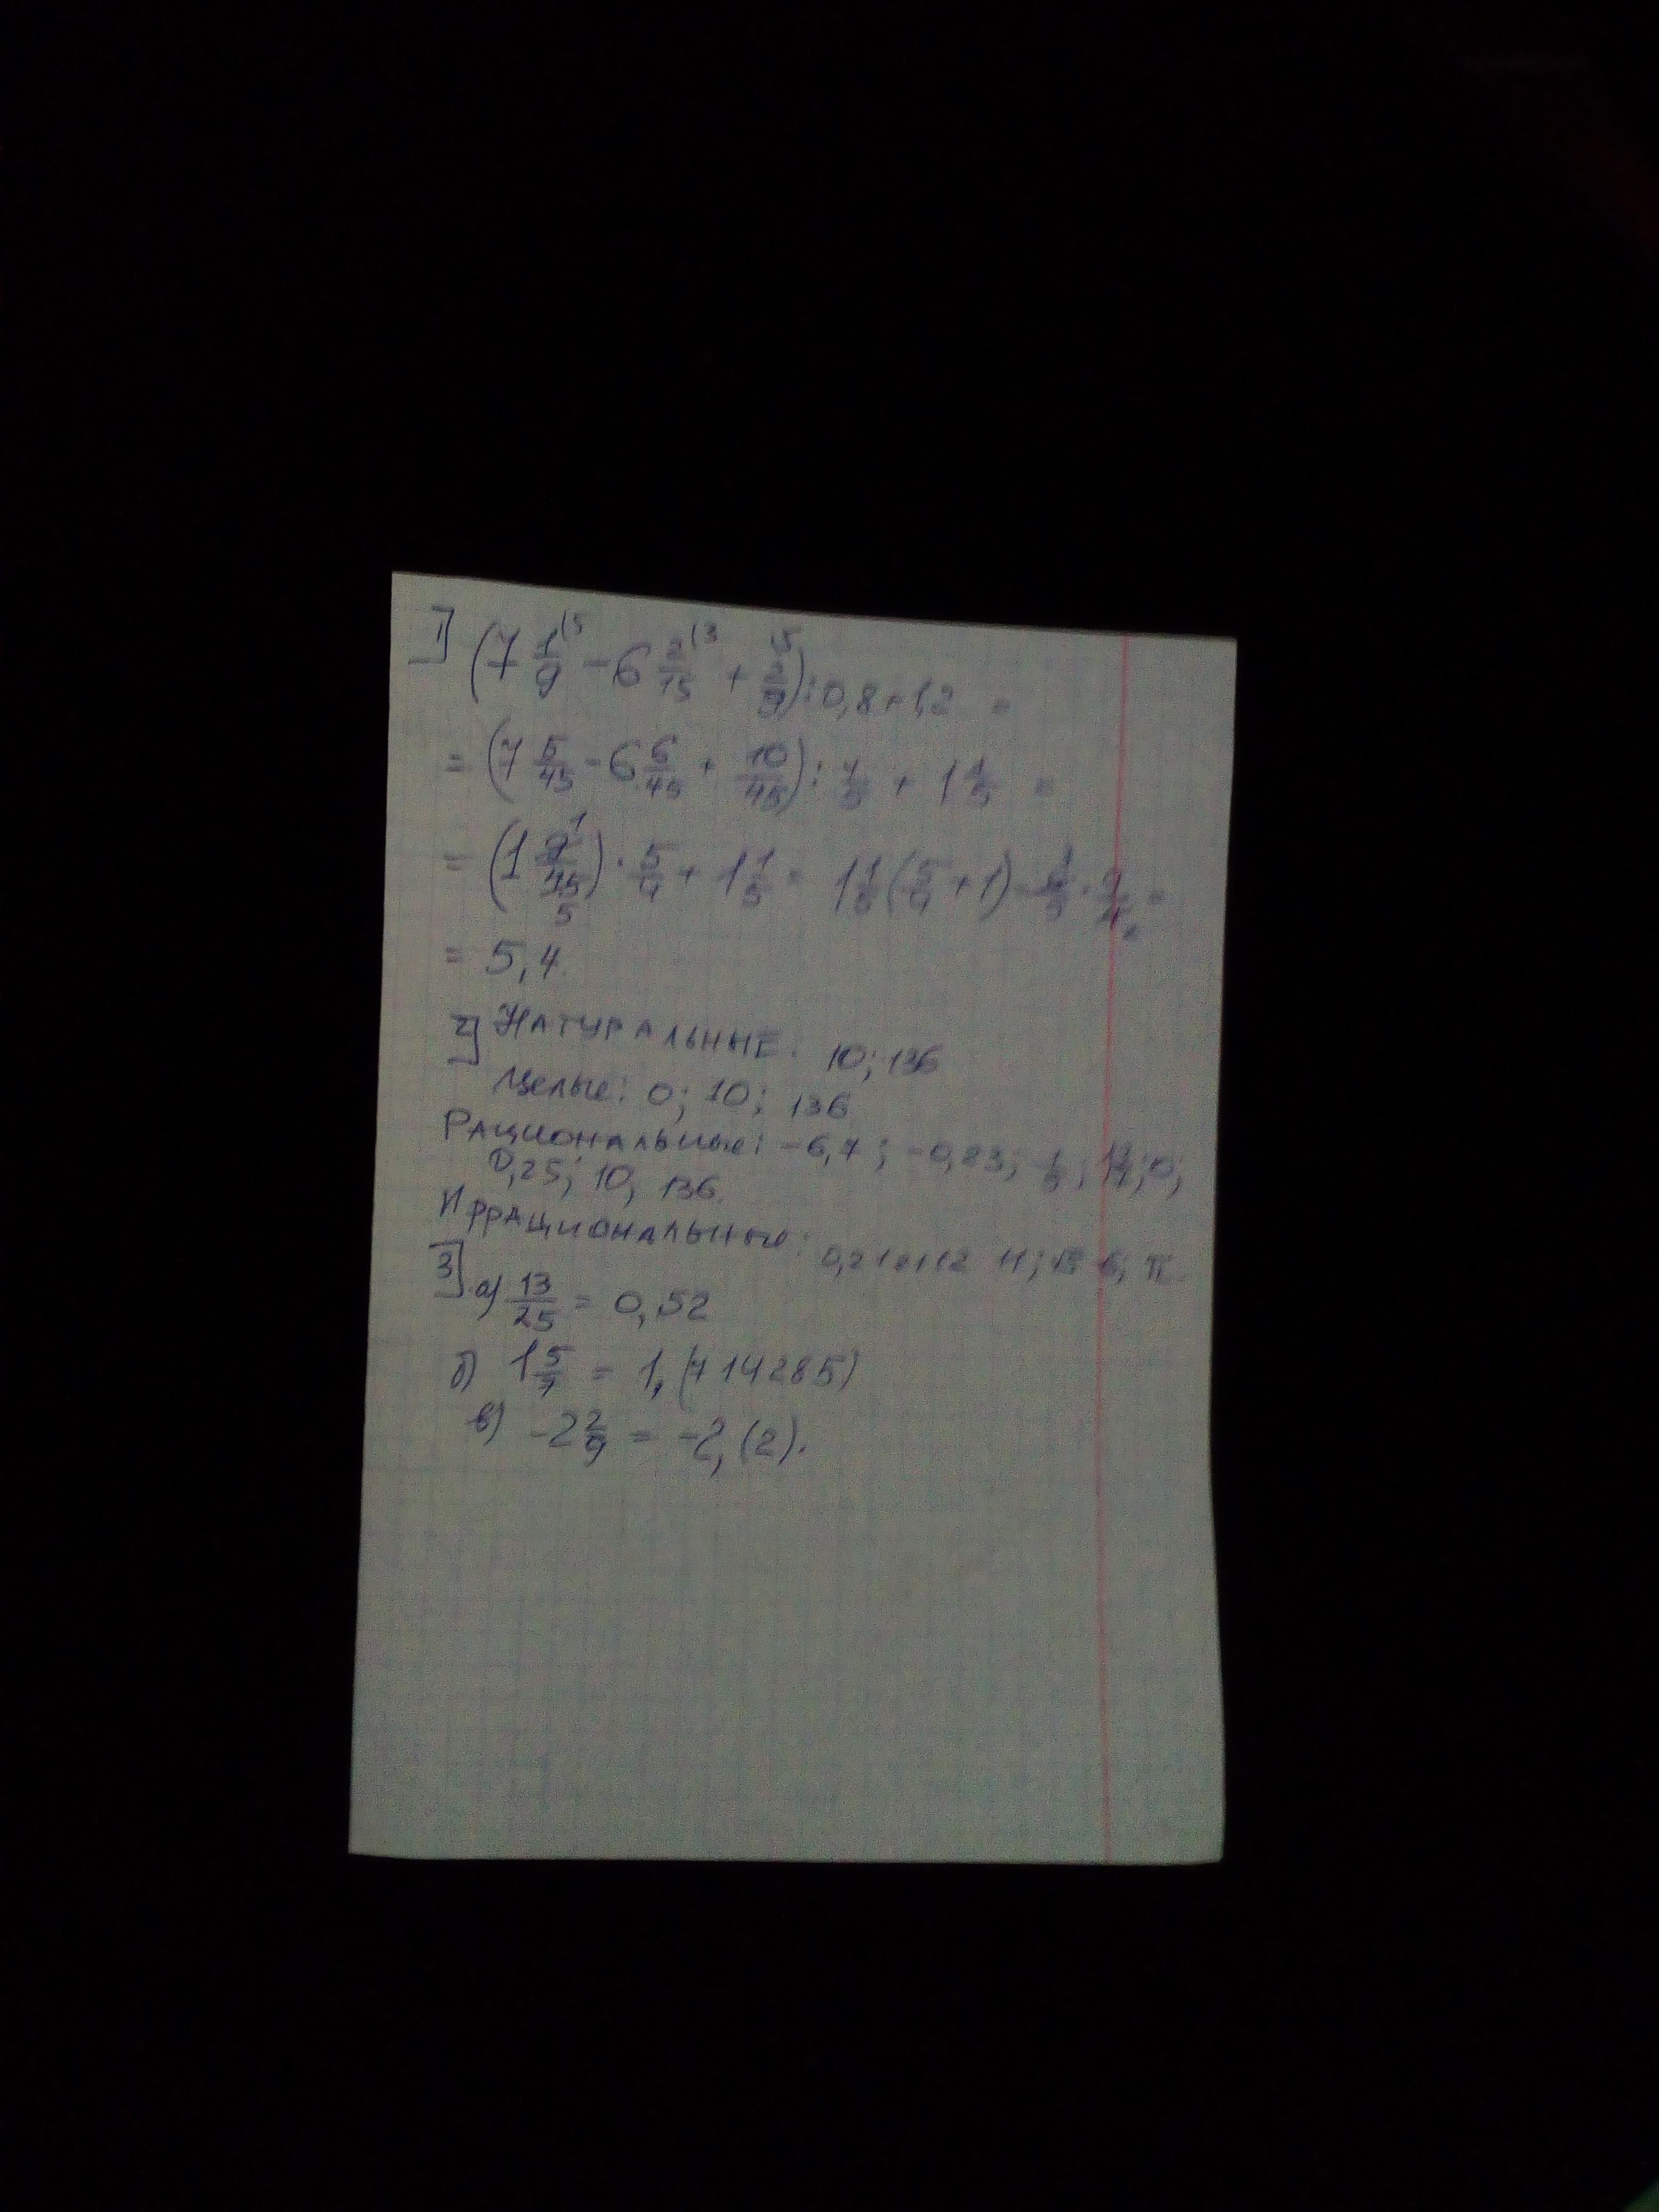 1] (7 1/9 (5 - 6 2/15 (3 + 2/9 (5) : 0,8 + 1,2 =
= (7 5/45 - 6 6/45 + 10/45) : 4/5 + 1 1/5 =
= (1 9/45 1 5) · 5/4 + 1 1/5 = 1 1/5 (5/4 + 1) 6/5 · 9/4 =
= 5,4
2] Натуральные: 10; 136
Целые: 0; 10; 136
Рациональные: -6,7; -0,83; 0;
0,25; 10, 136.
Иррациональные: π
3] а) 13/25 = 0,52
б) 1 5/7 = 1,(714285)
в) -2 2/9 = -2,(2).